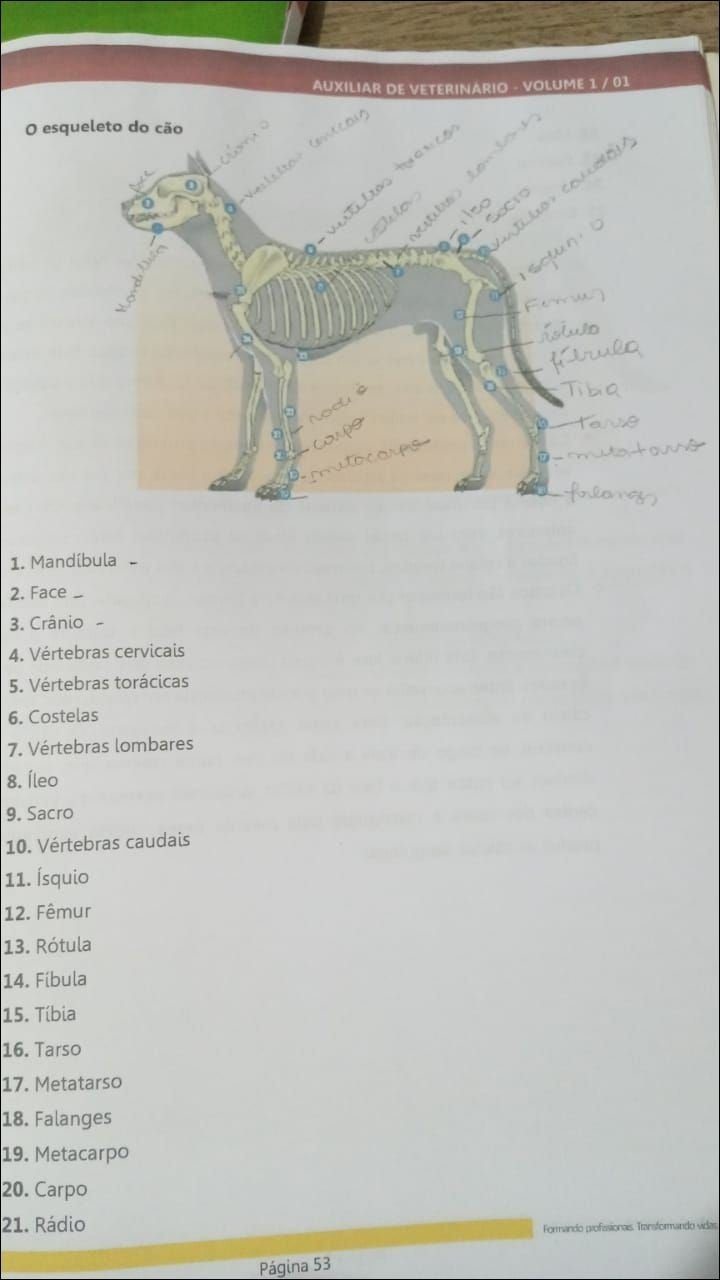 AUXILIAR DE VETERINÁRIO - VOLUME 1 / 01
O esqueleto do cão
face
crânio
vertebras cervicais
vertebras
costelas
vertebras lombares
ileo
sacro
vertebras caudais
isquio
Mandibula
Femur
rotula
fíbula
Tibia
Tarso
metatarso
falanges
radio
carpo
metacarpo
1. Mandíbula -
2. Face -
3. Crânio -
4. Vértebras cervicais
5. Vértebras torácicas
6. Costelas
7. Vértebras lombares
8. Íleo
9. Sacro
10. Vértebras caudais
11. Ísquio
12. Fêmur
13. Rótula
14. Fíbula
15. Tíbia
16. Tarso
17. Metatarso
18. Falanges
19. Metacarpo
20. Carpo
21. Rádio
Formando profissionais. Transformando vidas
Página 53